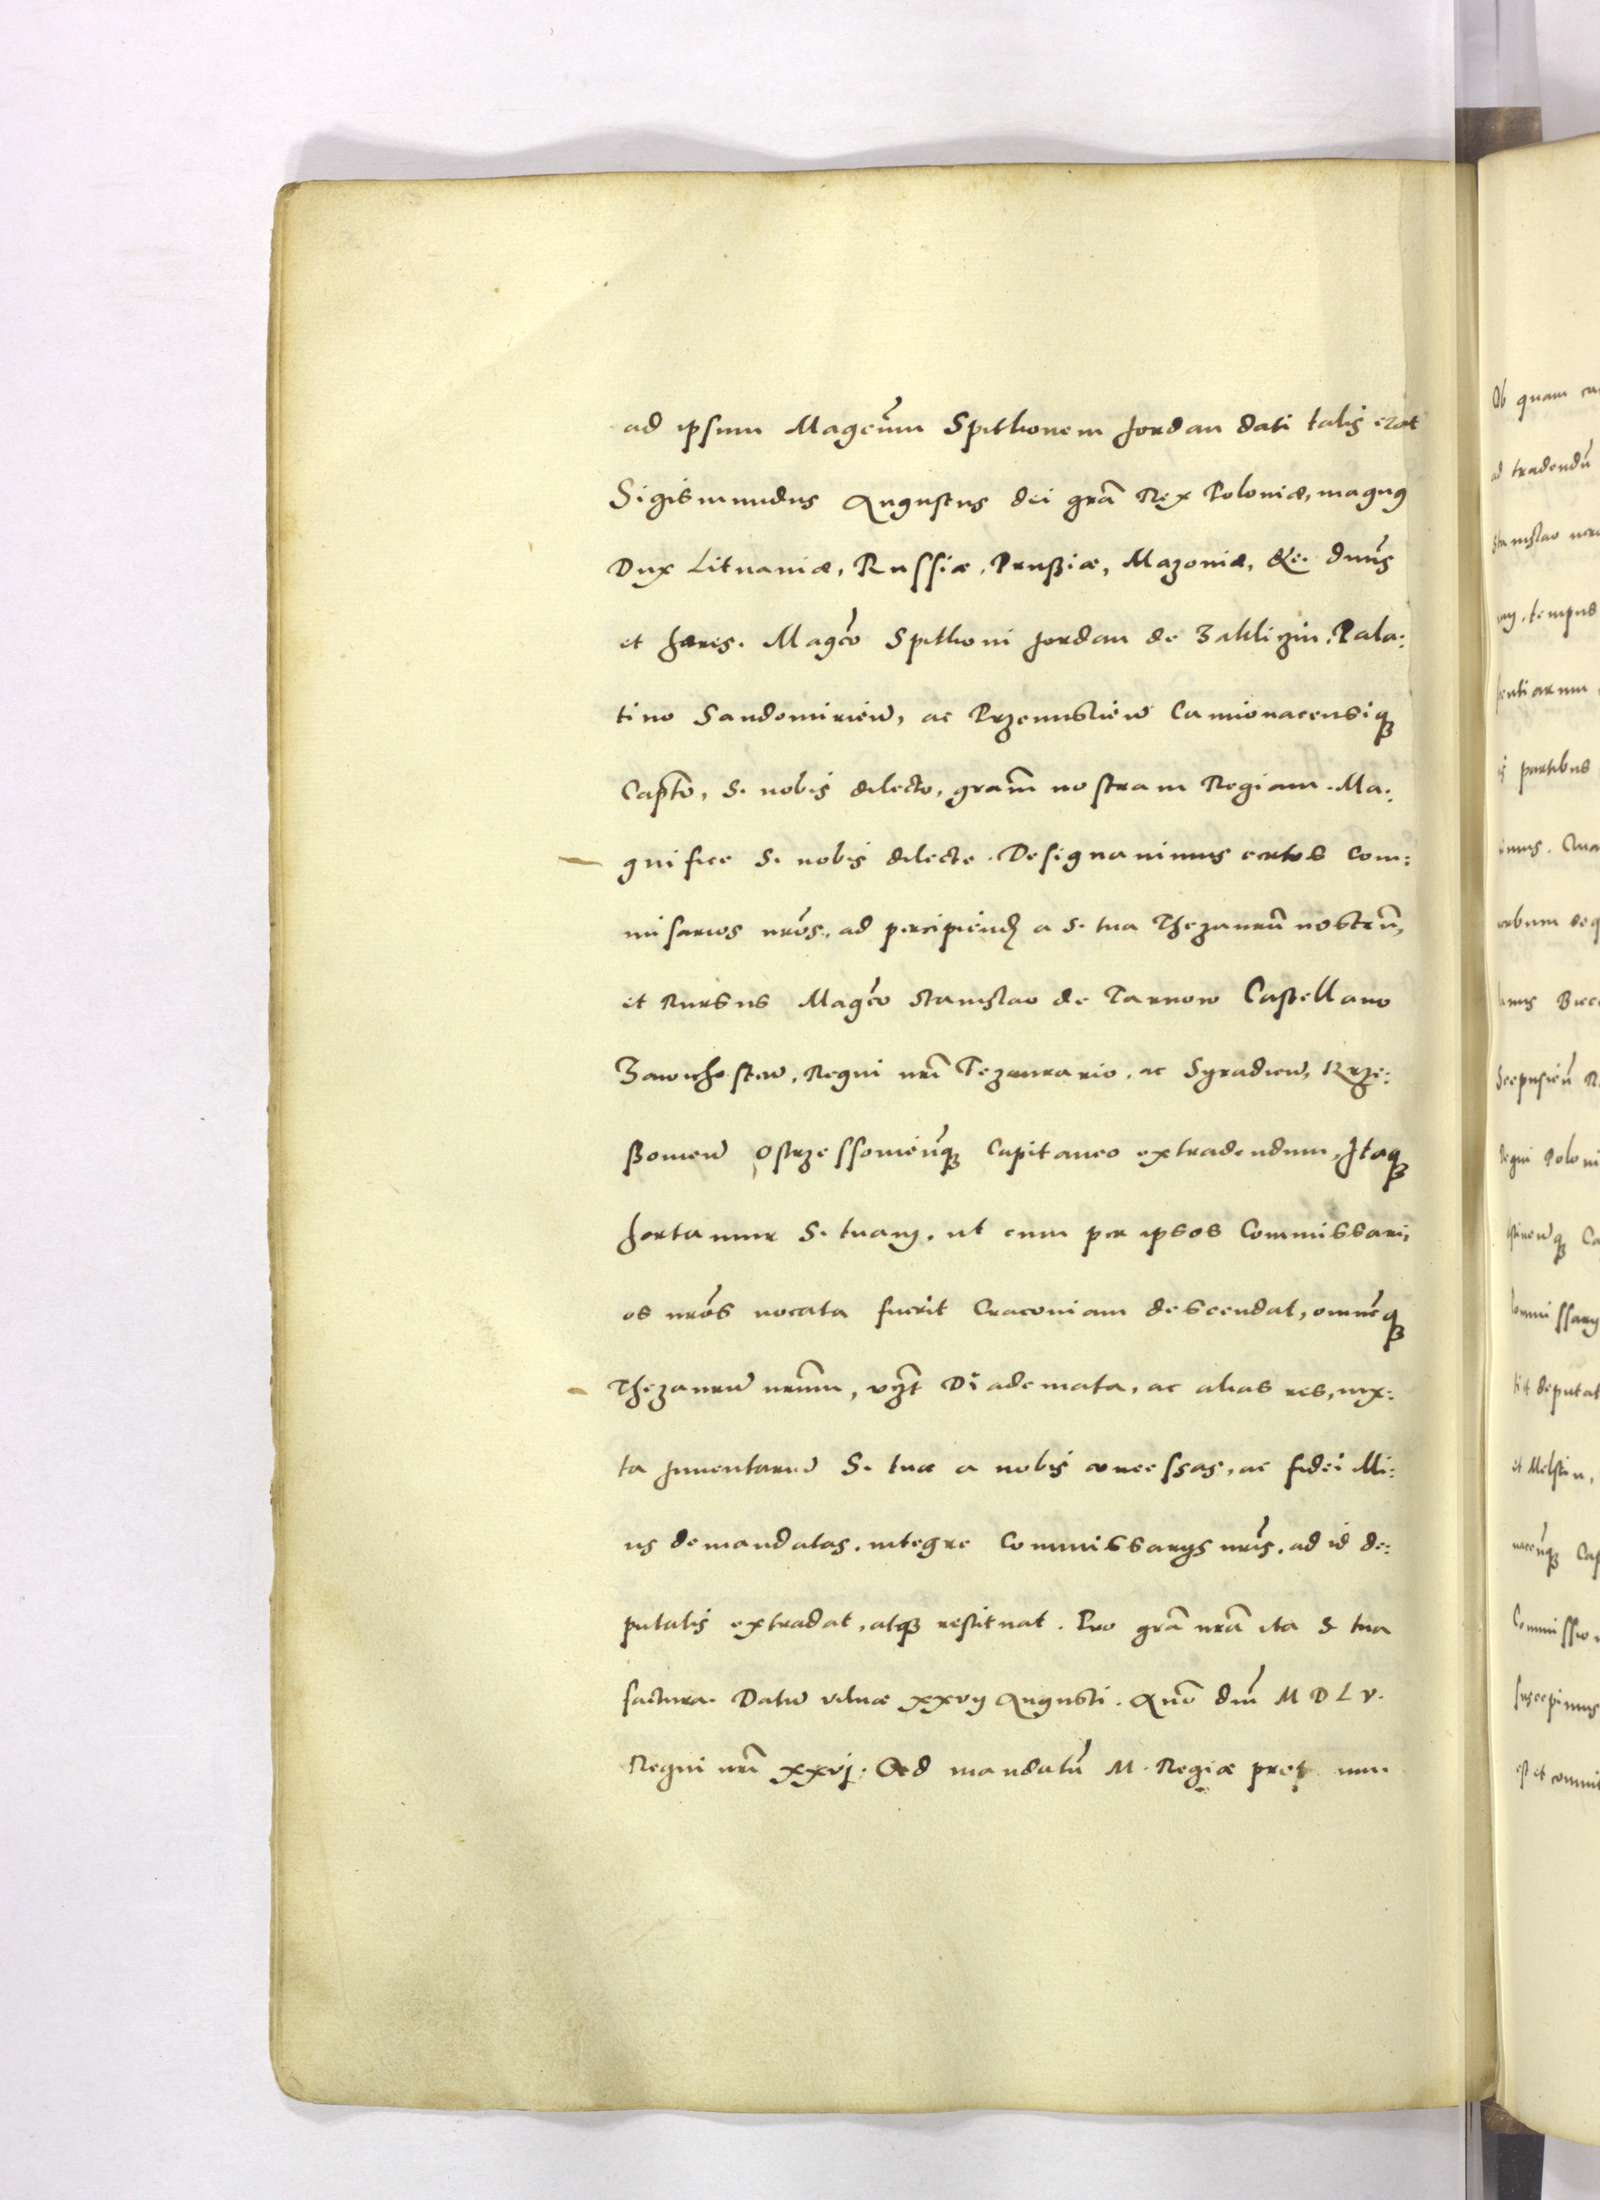 ad ipsum Magcum Spithonem Jordan dati talis erat
Sigismundus Augustus dei gra Rex Poloniæ, magnus
Dux Lituaniæ, Russiæ, Prußiæ, Mazoviæ, &c. dnus
et hæres. Magco Spithoni Jordan de Zakliczin, Pala:
tino Sandomirien, ac Przemislien Camionacensiq
Capto, S. nobis dilecto, gram nostram Regiam. Ma:
gnifice S. nobis dilecte. Designavimus certos Com:
misarios nros, ad percipiend a S. tua Thezaurū nostrū,
et Rursus Magco Stanislao de Tarnow Castellano
Zawichosten, Regni nri Tezaurario, ac Syradien, Krze:
ßovien Ostrzessovienq Capitaneo extradendum. Itaq
hortamur S. tuam, ut cum per ipsos Commissari,
os nros vocata fuerit Cracoviam descendat, omneq
Thezauru nrum, vzt Diademata, ac alias res, iux:
ta Inventariu S. tuæ a nobis concessas, ac fidei illi:
us demandatas, integre Commissarijs nris, ad id de:
putatis extradat, atq restituat. Pro gra nra ita S. tua
factura. Datu vilnæ xxvij Augusti. Ano dni M D L V.
Regni nri xxvj. Ad mandatū M. Regiæ
Ob quam
ad tradendū
tempus
partibus
Regni
deputat
et Melstin,